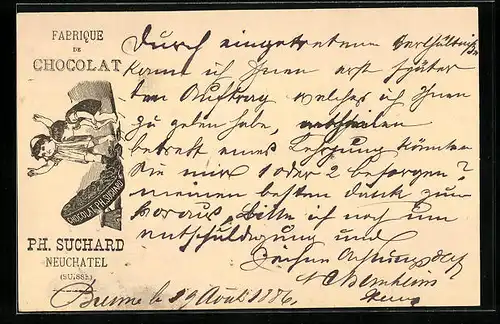 FABRIQUE
DE
CHOCOLAT
CHOCOLAT PH. SUCHARD
PH. SUCHARD
NEUCHATEL
(SUISSE)
Durch eingetretene Verhältnisse
kann ich Ihnen erst später
den Auftrag welchen ich Ihnen
zu geben habe, ertheilen
betreff eines Lehrjung könnten
Sie mir 1 oder 2 besorgen?
meinen besten Dank zum
voraus, Bitte ich noch um
entschuldigung und
zeichne Achtungsvoll
Bernheim
le 19 Août 1886.